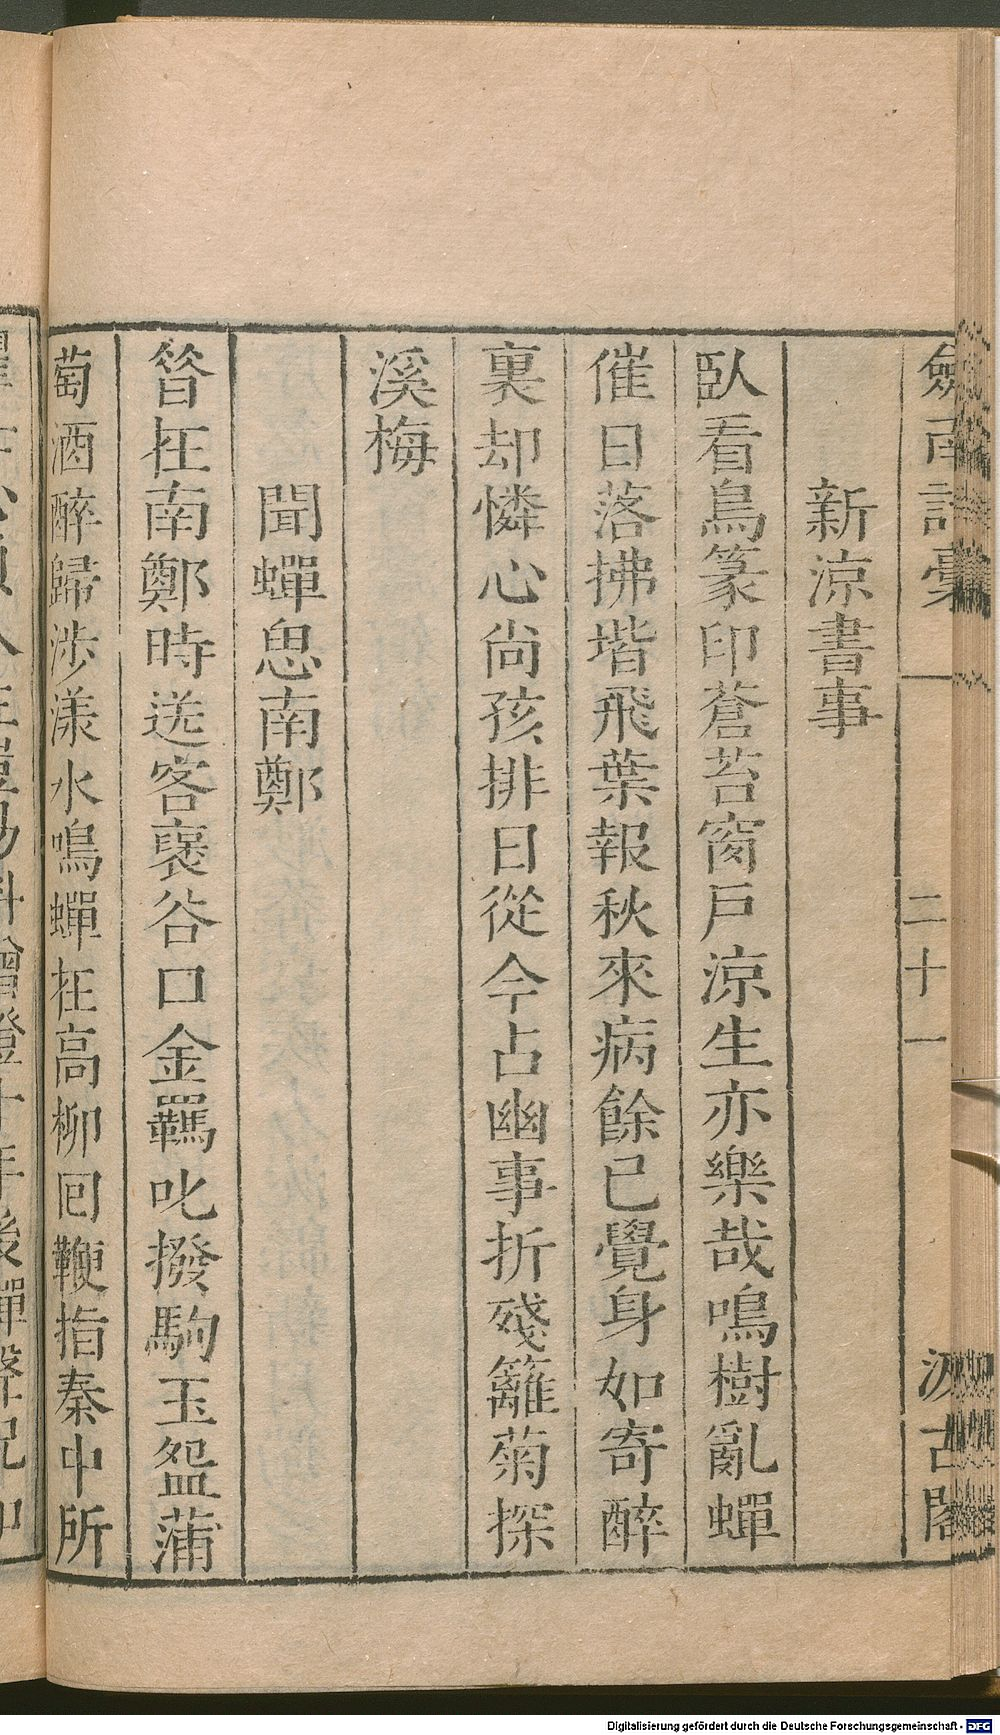 劔南詩稾 二十一 汲古閣
新涼書事
臥看鳥篆印蒼苔窗戶涼生亦樂哉鳴樹亂蟬
催日落拂堦飛葉報秋來病餘已覺身如寄醉
裏却憐心尚孩排日從今占幽事折殘籬菊探
溪梅
聞蟬思南鄭
昝在南鄭時送客褒谷口金羈叱撥駒玉盌蒲
萄酒醉歸涉漾水鳴蟬在高柳回鞭指秦中所
Digitalisierung gefördert durch die Deutsche Forschungsgemeinschaft - DFG